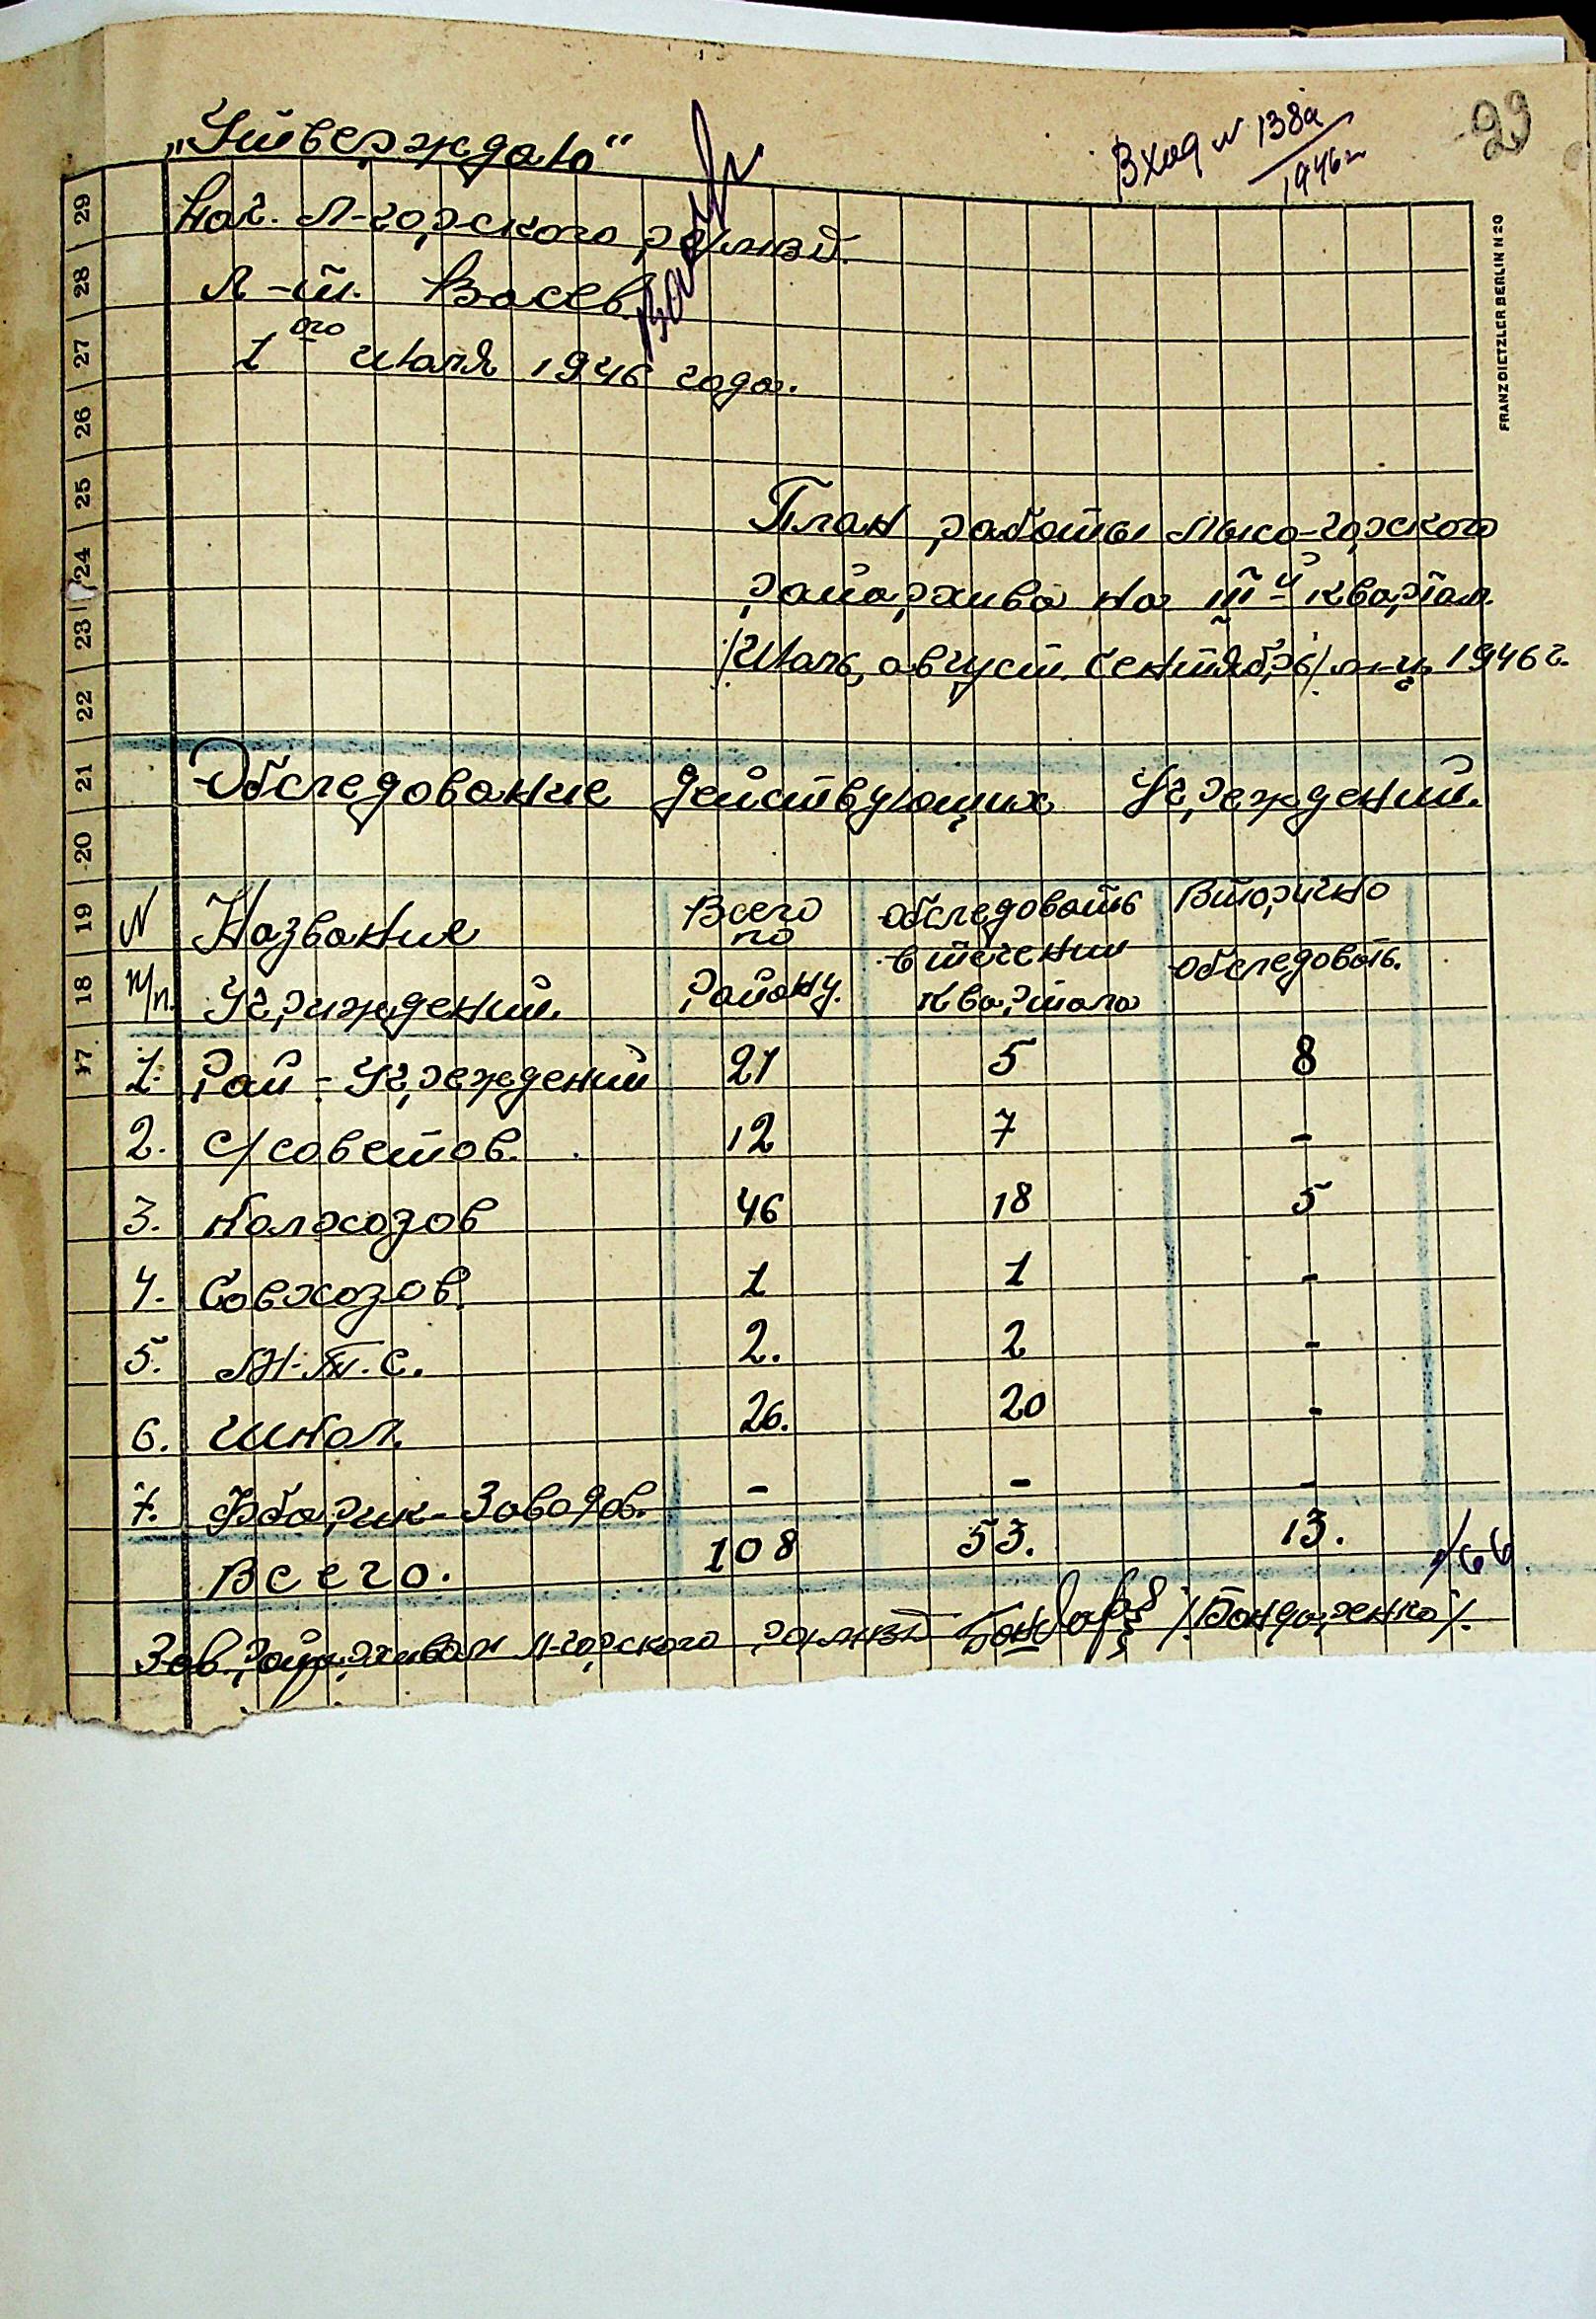 29
Вход N 138а
1946 г
„Утверждаю“
Нач. Л-горского райМВД.
Л-т. Васев
1ого июля 1946 года.
План работы Лысо-горского
райархива на III-й квартал
/Июль, август, сентябрь/ м-ц. 1946 г.
Обследование действующих Учреждений.
N Название Всего по обследовать Вторично
п/п. Учриждений. району. в течении квартала обследовать.
1. Рай-Учреждений 21 5 8
2. с/советов. 12 7 -
3. Колхозов 46 18 5
4. Совхозов. 1 1 -
5. М.Т.С. 2. 2 -
6. Школ. 26. 20 -
7. Фбарик-Заводов. - - -
Всего. 108 53. 13. /66
Зав. райархивом Л-горского райМВД /Бондаренко/.
29
28
27
26
25
24
23
22
21
20
19
18
17
FRANZ DIETZLER BERLIN N 20